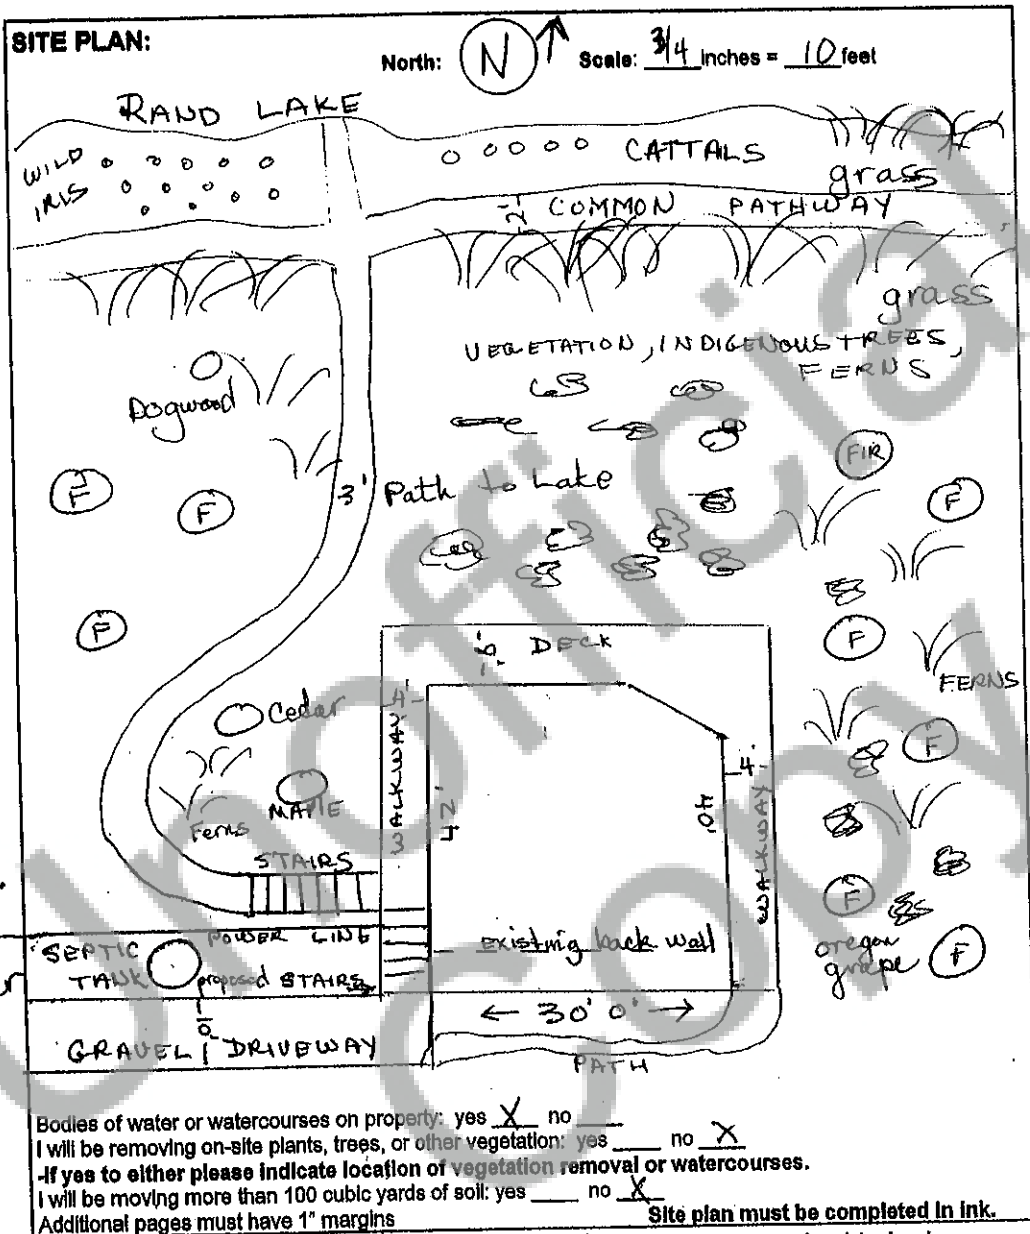 SITE PLAN:
North: N Scale: 3/4 inches = 10 feet
RAND LAKE
WILD IRIS
CATTAILS
grass
12'
COMMON PATHWAY
grass
VEGETATION, INDIGENOUS TREES,
FERNS
Dogwood
FIR
3' Path to Lake
F
F
F
F
F
DECK
FERNS
4'
Cedar
WALKWAY
42'
40'
4'
WALKWAY
F
MAPLE
Ferns
STAIRS
F
POWER LINE
SEPTIC
TANK
proposed STAIRS
existing back wall
oregon
grape
F
← 30' 0" →
10'
GRAVEL DRIVEWAY
PATH
Bodies of water or watercourses on property: yes X no ___
I will be removing on-site plants, trees, or other vegetation: yes ___ no X
-If yes to either please indicate location of vegetation removal or watercourses.
I will be moving more than 100 cubic yards of soil: yes ___ no X
Additional pages must have 1" margins Site plan must be completed in ink.
Unofficial
Copy